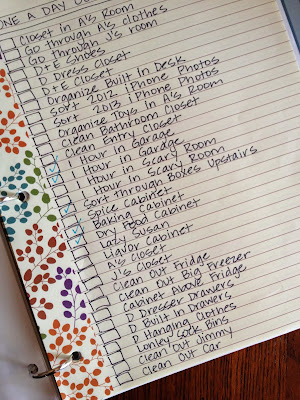 ONE A DAY
Closet in A's Room
Go through A's clothes
Go through J's room
D+E Shoes
D Dress Closet
D+E Closet
Organize Built In Desk
Sort 2012 iPhone Photos
Sort 2013 iPhone Photos
Organize Toys In A's Room
Clean Bathroom Closet
Clean Entry Closet
1 Hour in Garage
1 Hour in Garage
1 Hour in Scary Room
1 Hour in Scary Room
Sort through Boxes Upstairs
Spice Cabinet
Baking Cabinet
Dry Food Cabinet
Lazy Susan
Liquor Cabinet
A's Closet
J's Closet
Clean Out Fridge
Clean Out Big Freezer
Cabinet Above Fridge
D Dresser Drawers
D Built In Drawers
D Hanging Clothes
Lonley Sock Bins
Clean Out Jimmy
Clean Out Car